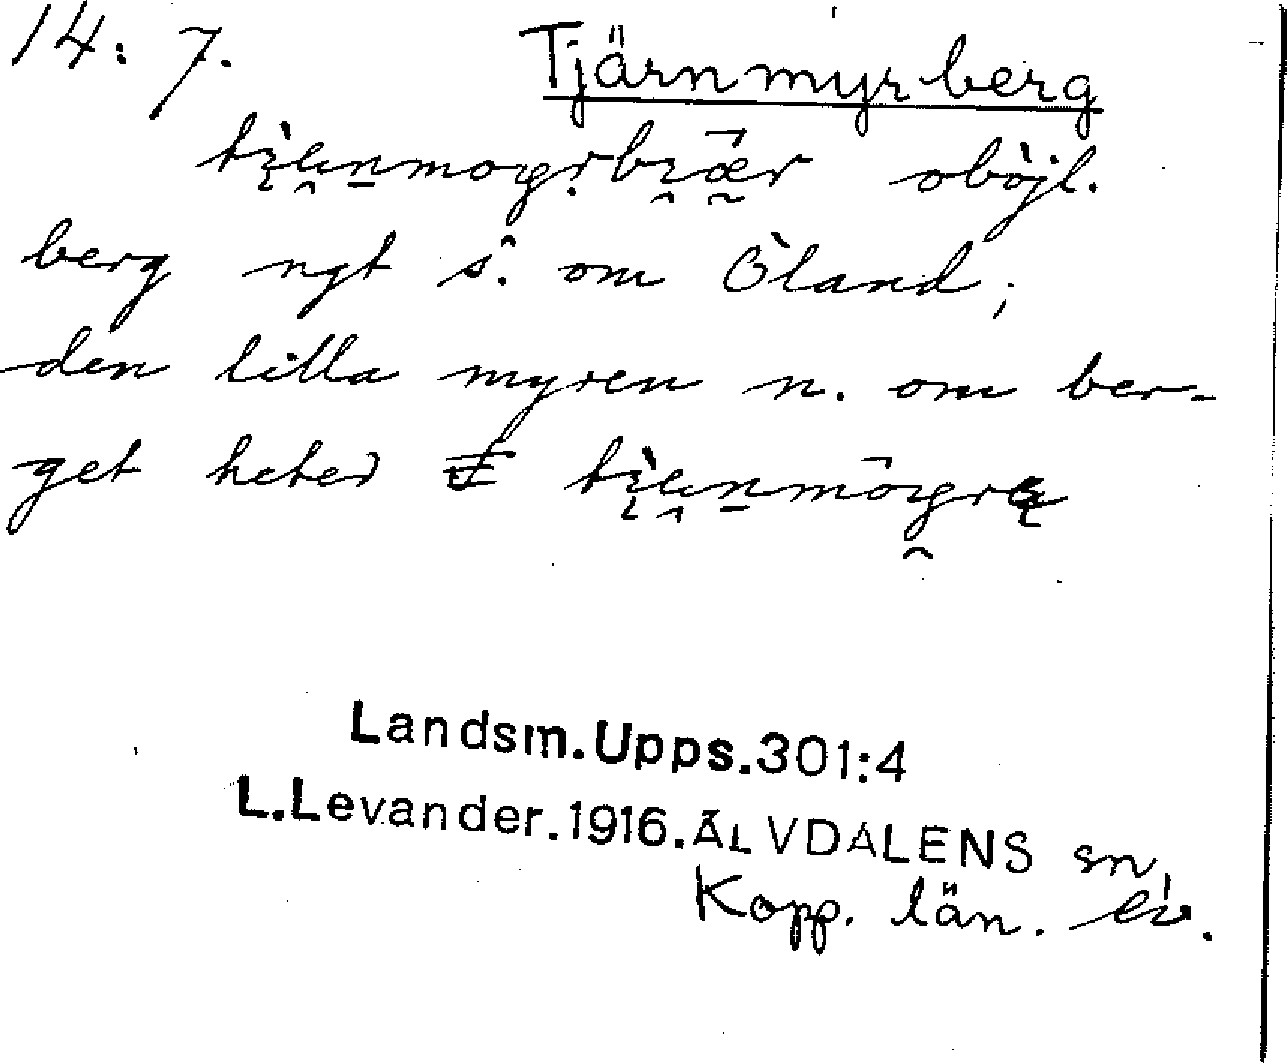 14: 7. Tjärnmyrberg
oböjl.
berg ngt s. om Öland;
den lilla myren n. om ber-
get heter
Landsm.Upps.301:4
L.Levander.1916.ÄLVDALENS sn,
Kopp. län.